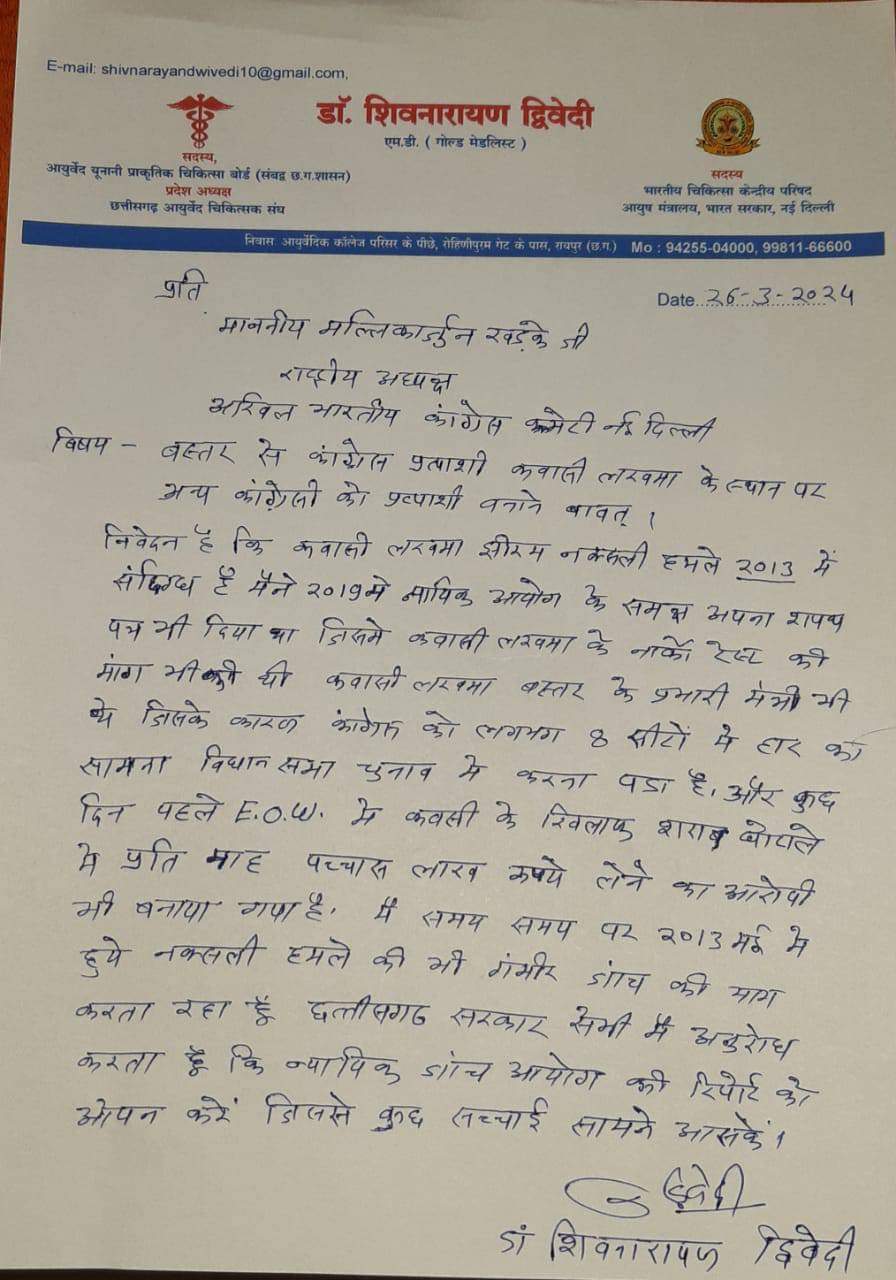 E-mail: shivnarayandwivedi10@gmail.com,
डॉ. शिवनारायण द्विवेदी
एम.डी. ( गोल्ड मेडलिस्ट )
सदस्य,
आयुर्वेद यूनानी प्राकृतिक चिकित्सा बोर्ड (संबद्व छ.ग.शासन)
प्रदेश अध्यक्ष
छत्तीसगढ़ आयुर्वेद चिकित्सक संघ
सदस्य
भारतीय चिकित्सा केन्द्रीय परिषद
आयुष मंत्रालय, भारत सरकार, नई दिल्ली
निवास: आयुर्वेदिक कॉलेज परिसर के पीछे, रोहिणीपुरम गेट के पास, रायपुर (छ.ग.) Mo : 94255-04000, 99811-66600
Date 26-3-2024
प्रति
माननीय मल्लिकार्जुन खड़के जी
राष्ट्रीय अध्यक्ष
अखिल भारतीय कांग्रेस कमेटी नई दिल्ली
विषय - बस्तर से कांग्रेस प्रत्याशी कवासी लखमा के स्थान पर
अन्य कांग्रेसी को प्रत्याशी बनाने बावत्।
निवेदन है कि कवासी लखमा झीरम नक्सली हमले 2013 में
संदिग्ध है मैने 2019 मे न्यायिक आयोग के समक्ष अपना शपथ
पत्र भी दिया था जिसमे कवासी लखमा के नार्को टेस्ट की
मांग भी की थी कवासी लखमा बस्तर के प्रभारी मंत्री भी
थे जिसके कारण कांग्रेस को लगभग 8 सीटों मे हार का
सामना विधान सभा चुनाव मे करना पडा है, और कुछ
दिन पहले E.O.W. मे कवसी के खिलाफ शराब घोटाले
मे प्रति माह पच्चास लाख रूपये लेने का आरोपी
भी बनाया गया है, मै समय समय पर 2013 मई मे
हुये नक्सली हमले की भी गंभीर जांच की माग
करता रहा हूँ छत्तीसगढ सरकार से भी मै अनुरोध
करता हूँ कि न्यायिक जांच आयोग की रिपोर्ट को
ओपन करें जिससे कुछ सच्चाई सामने आसकें।
द्विवेदी
डॉ शिवनारायण द्विवेदी